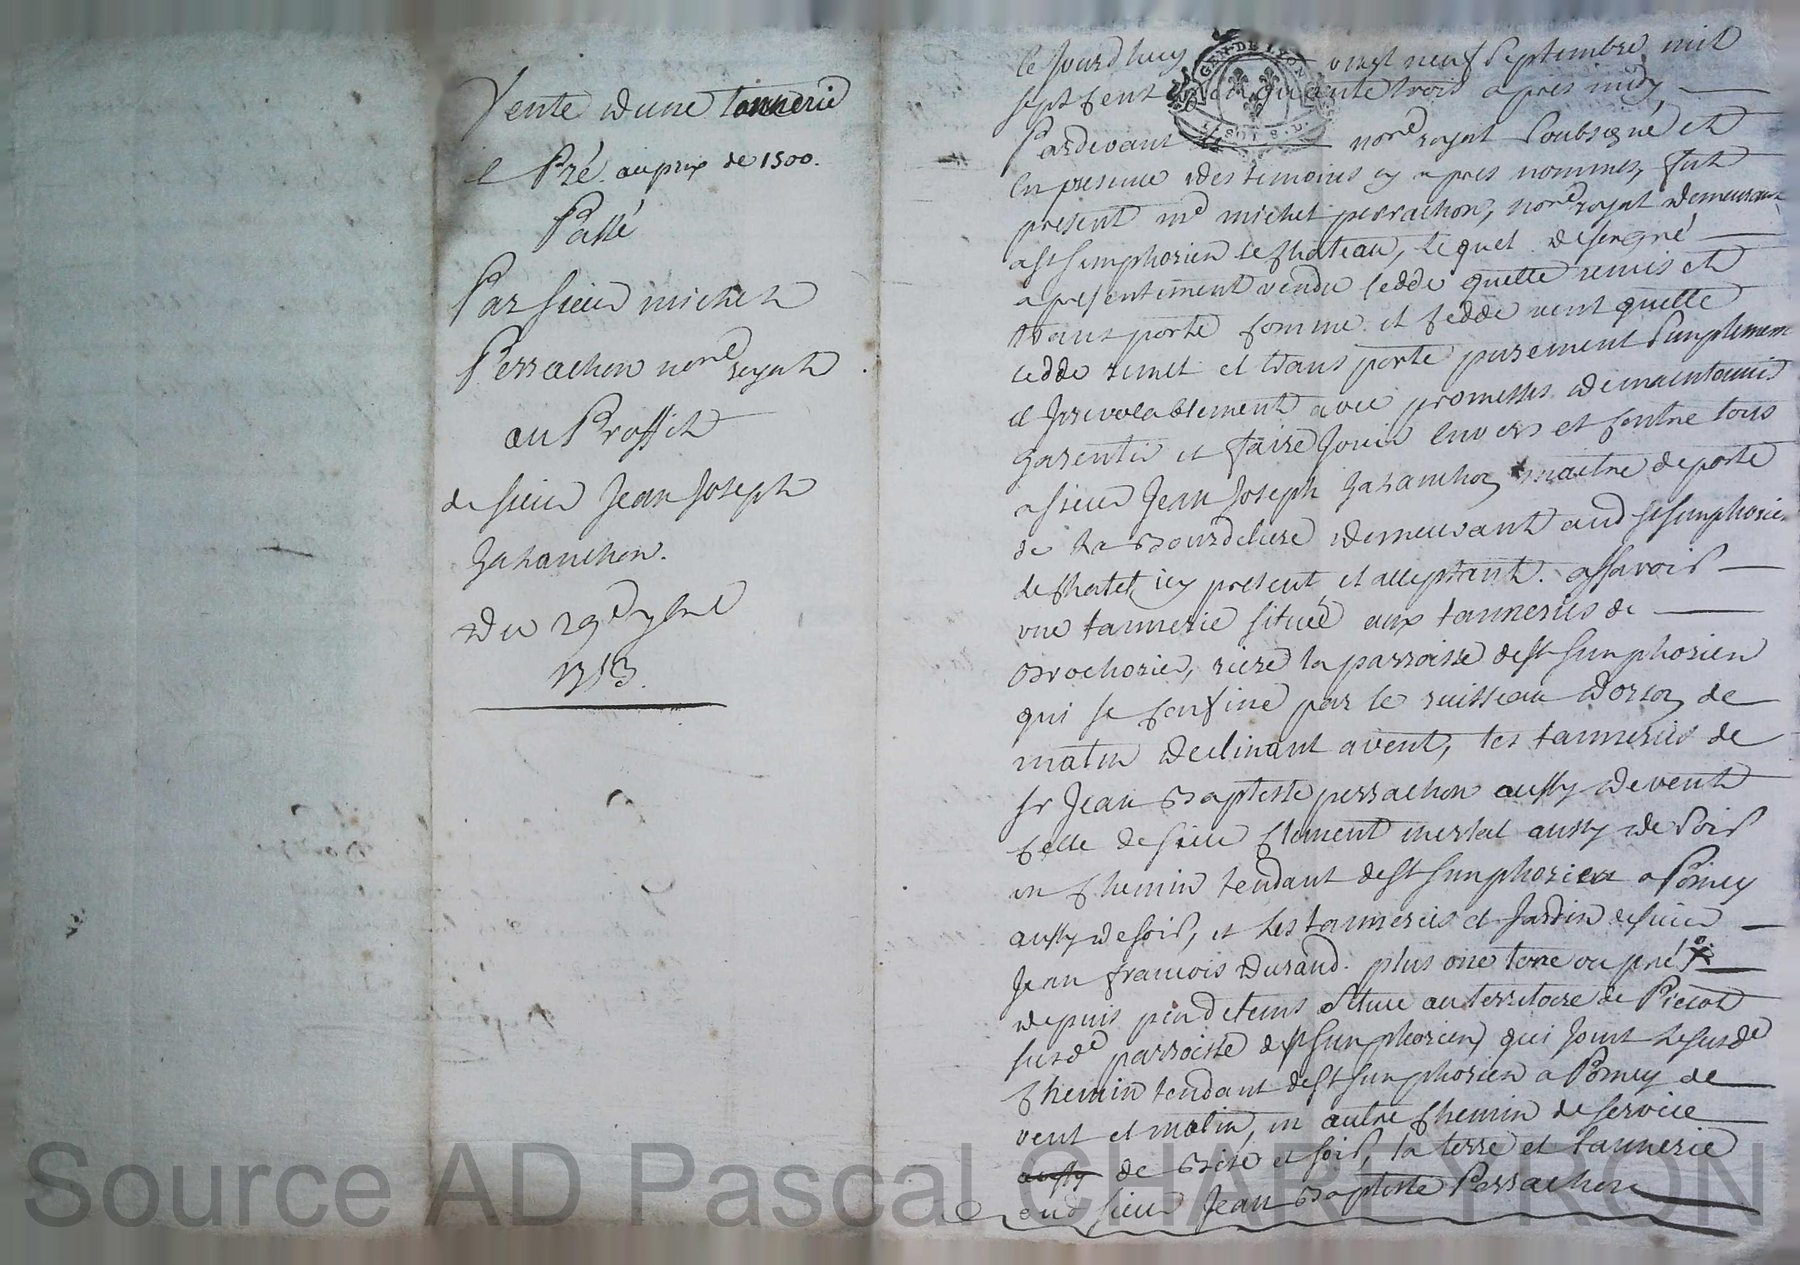 Vente d'une tannerie
et Pré au prix de 1500.
Passé
Par sieur michel
Perrachon nore royal
au Proffit
de sieur Jean Joseph
Garanchon.
Du 29e 7bre
1753.
Ce Jourd'huy vingt neuf septembre mil
sept cent cinquante trois apres midy
Pardevant nore royal soubsigné et
En presence des temoins cy apres nommes, fut
present me michel perrachon, nore royal demeurant
a st simphorien le chateau, lequel de son gré
a presentement vendu cedde quitte remis et
transporté comme et cedde vent quitte
cedde remet et transporte purement simplement
et Jrrevocablement avec promesses de maintenir
garentir et faire Jouir Envers et contre tous
a sieur Jean Joseph garanchon maitre de poste
de La Bourdeliere demeurant aud st simphorien
le chatel icy present et acceptant. assavoir
une tannerie située aux tanneries de
Brochorie, riere la parroisse de st simphorien
qui se confine par le ruisseau d'orzon de
matin declinant a vent, les tanneries de
sr Jean Baptiste perrachon aussy de vent
celle de sieur Clement mertal aussy de soir
un chemin tendant de st simphorien a Pomey
aussy de soir, et les tanneries et Jardin de sieur
Jean francois Durand. plus une terre ou pré
depuis peu de tems située au territoire de Pierot
susde parroisse de st simphorien qui Joint le susde
chemin tendant de st simphorien a Pomey de
vent et matin, un autre chemin de service
aussy de Bize et soir, la terre et tannerie
aud sieur Jean Baptiste Perrachon
GEN. DE LYON
Source AD Pascal CHAREYRON